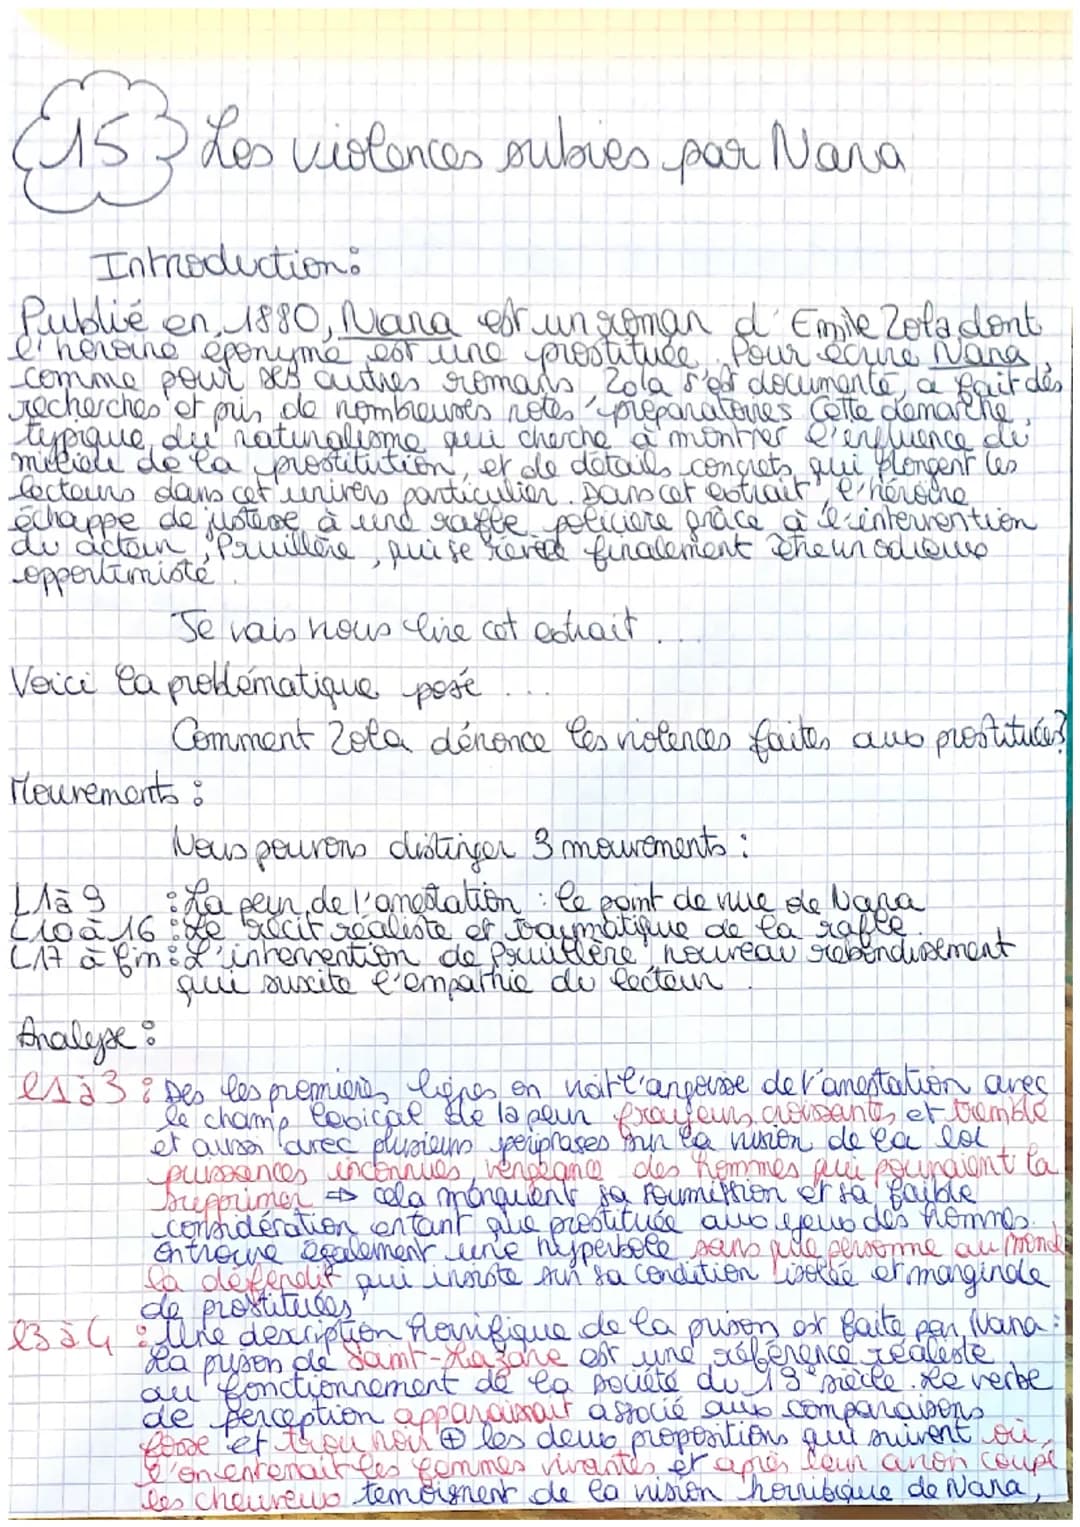 15 Les violences subies par Nana
Introduction:
Publié en 1880, Nana est un roman d'Emile Zola dont
l'héroïne éponyme est une prostituée. Pour écrire Nana,
comme pour ses autres romans, Zola s'est documenté, a fait des
recherches et pris de nombreuses notes préparatoires. Cette démarche
typique du naturalisme qui cherche à montrer l'influence du
milieu de la prostitution, et de détails concrets, qui plongent les
lecteurs dans cet univers particulier. Dans cet extrait, l'héroïne
échappe de justesse à une rafle policière grâce à l'intervention
du acteur, Prullière, qui se révèle finalement être un odieux
opportuniste.
Je vais nous lire cet extrait...
Voici la problématique posé ...
Comment Zola dénonce les violences faites aux prostituées?
Mouvements :
Nous pouvons distinger 3 mouvements :
L1 à 9 : La peur de l'arrestation : le point de vue de Nana
L10 à 16 : Le récit réaliste et traumatique de la rafle.
L17 à fin : L'intervention de Prullière, nouveau rebondissement
qui suscite l'empathie du lecteur.
Analyse :
l1 à 3 : Dès les premières lignes on voit l'angoisse de l'arrestation avec
le champ lexical de la peur frayeurs croissantes et tremble
et aussi avec plusieurs périphrases sur la vision de la loi
puissances inconnues, vengeance des hommes qui pouvaient la
supprimer ⇒ cela marquent sa soumission et sa faible
considération entant que prostituée aux yeux des hommes.
On trouve également une hyperbole sans que personne au monde
la défendît qui insiste sur sa condition isolée et marginale
de prostituées
l3 à 4 : Une description horrifique de la prison est faite par Nana :
La prison de Saint-Lazare est une référence réaliste
au fonctionnement de la société du 19e siècle. Le verbe
de perception apparaissait associé aux comparaisons
fosse et trou noir ⊕ les deux propositions qui suivent où
l'on enterrait les femmes vivantes et après leur avoir coupé
les cheveux témoignent de la vision horrifique de Nana,